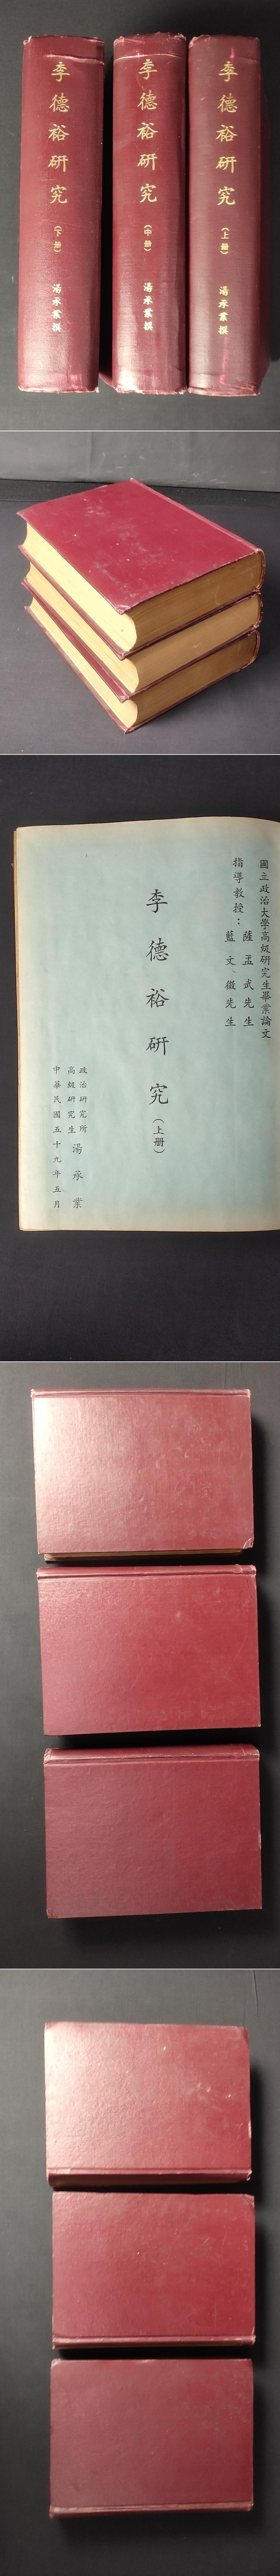 李德裕研究(上册) 湯承業撰
李德裕研究(中册) 湯承業撰
李德裕研究(下册) 湯承業撰
國立政治大學高級研究生畢業論文
指導教授：薩孟武先生
藍文徵先生
李德裕研究(上册)
政治研究所
高級研究生 湯承業
中華民國五十九年五月